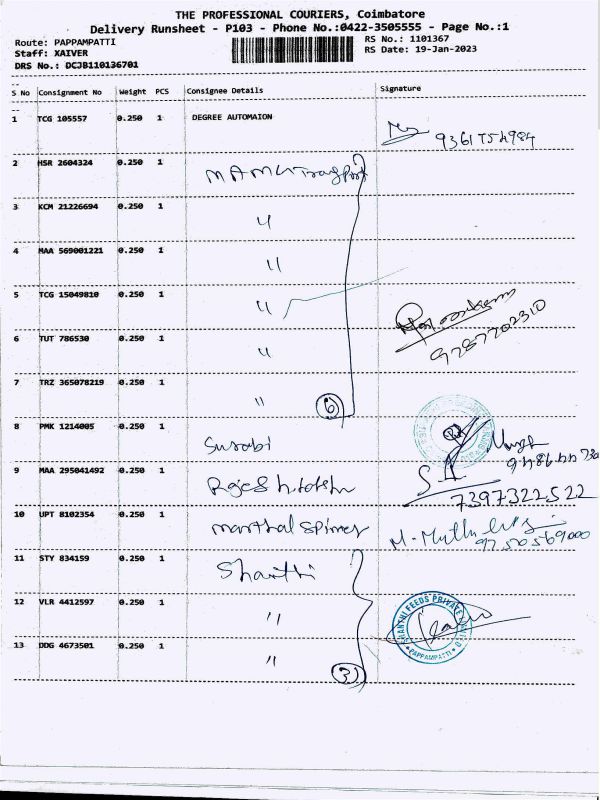 THE PROFESSIONAL COURIERS, Coimbatore
Delivery Runsheet - P103 - Phone No.:0422-3505555 - Page No.:1
Route: PAPPAMPATTI
Staff: XAIVER
DRS No.: DCJB110136701
RS No.: 1101367
RS Date: 19-Jan-2023
S No Consignment No Weight PCS Consignee Details Signature
1 TCG 105557 0.250 1 DEGREE AUTOMAION
9361754984
2 HSR 2604324 0.250 1 MAMU Transport
3 KCM 21226694 0.250 1 〃
4 MAA 569001221 0.250 1 〃
5 TCG 15049810 0.250 1 〃
6 TUT 786530 0.250 1 〃 9787702310
7 TRZ 365078219 0.250 1 〃 6
8 PMK 1214005 0.250 1 Surabi
9 MAA 295041492 0.250 1 7397322522
10 UPT 8102354 0.250 1 9750569000
11 STY 834159 0.250 1 Shanthi
12 VLR 4412597 0.250 1 〃
SHANTHI FEEDS PRIVATE LIMITED
PAPPAMPATTI
13 DDG 4673501 0.250 1 〃 3